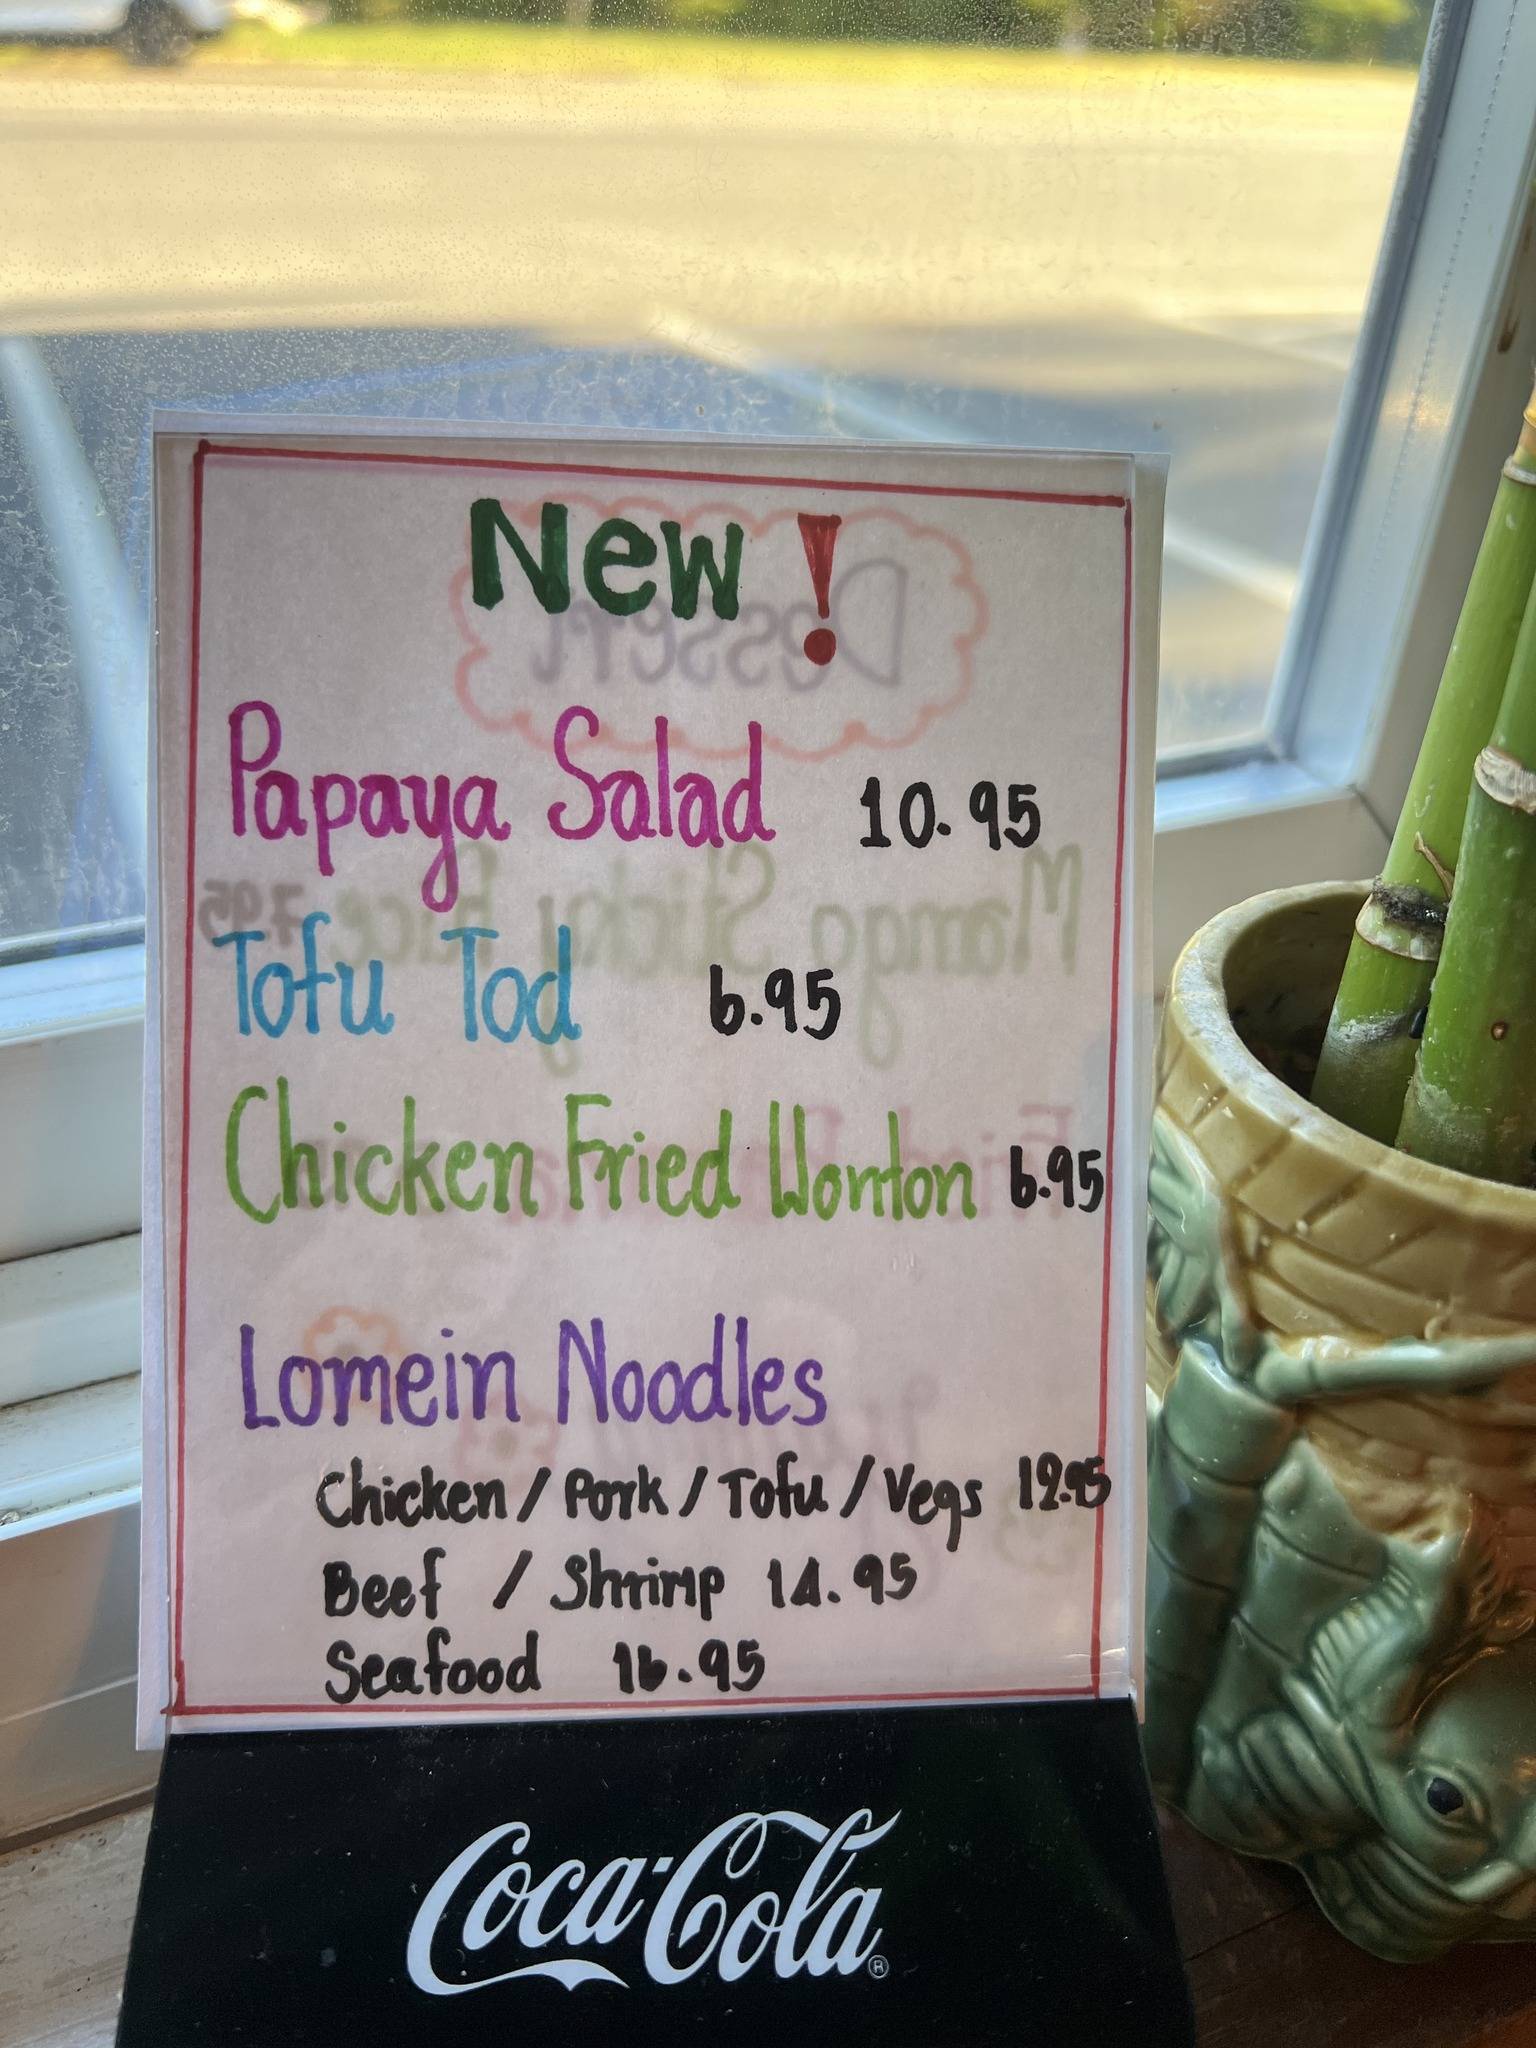 New!
Papaya Salad 10.95
Tofu Tod 6.95
Chicken Fried Wonton 6.95
Lomein Noodles
Chicken / Pork / Tofu / Vegs 12.95
Beef / Shrimp 14.95
Seafood 16.95
Coca-Cola®
Dessert
Mango Sticky Rice 7.95
Fried